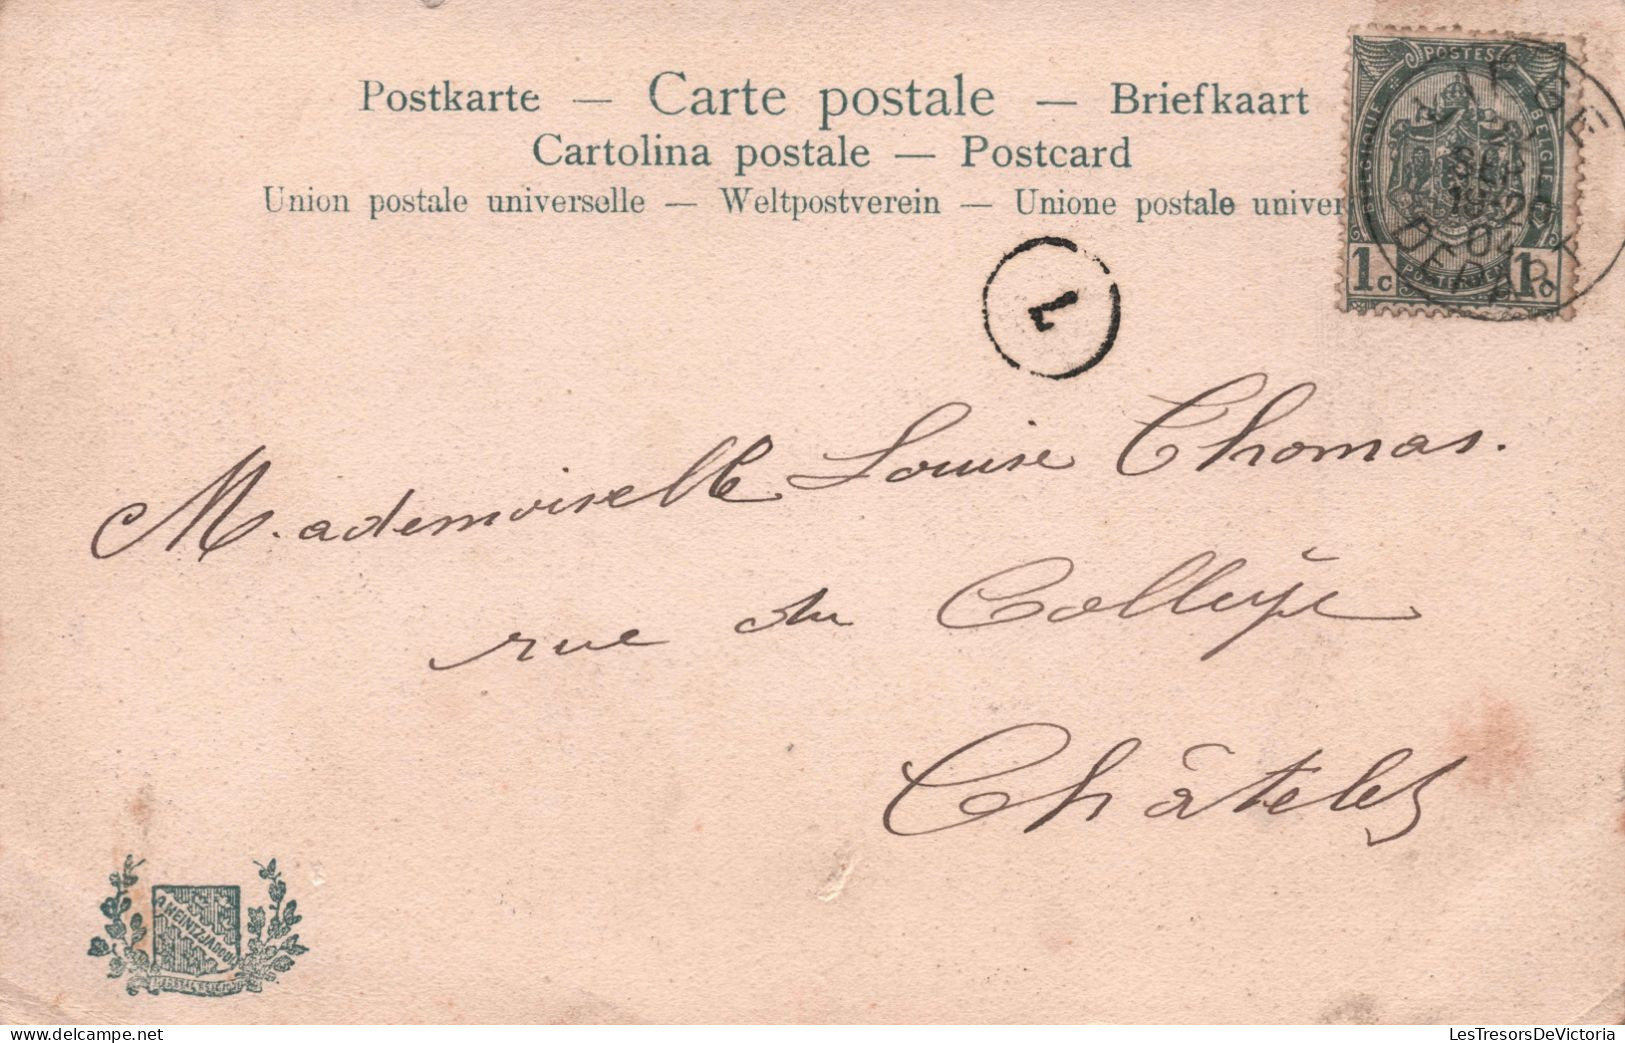 Postkarte — Carte postale — Briefkaart
Cartolina postale — Postcard
Union postale universelle — Weltpostverein — Unione postale univer
POSTES
BELGIQUE
BELGIË
1c
1c
LIEGE
SEP
19-20
DEPART
1
Mademoiselle Louise Thomas.
rue du Collège
Châtelet
HEINTZ-JADOUL
LesTresorsDeVictoria.com